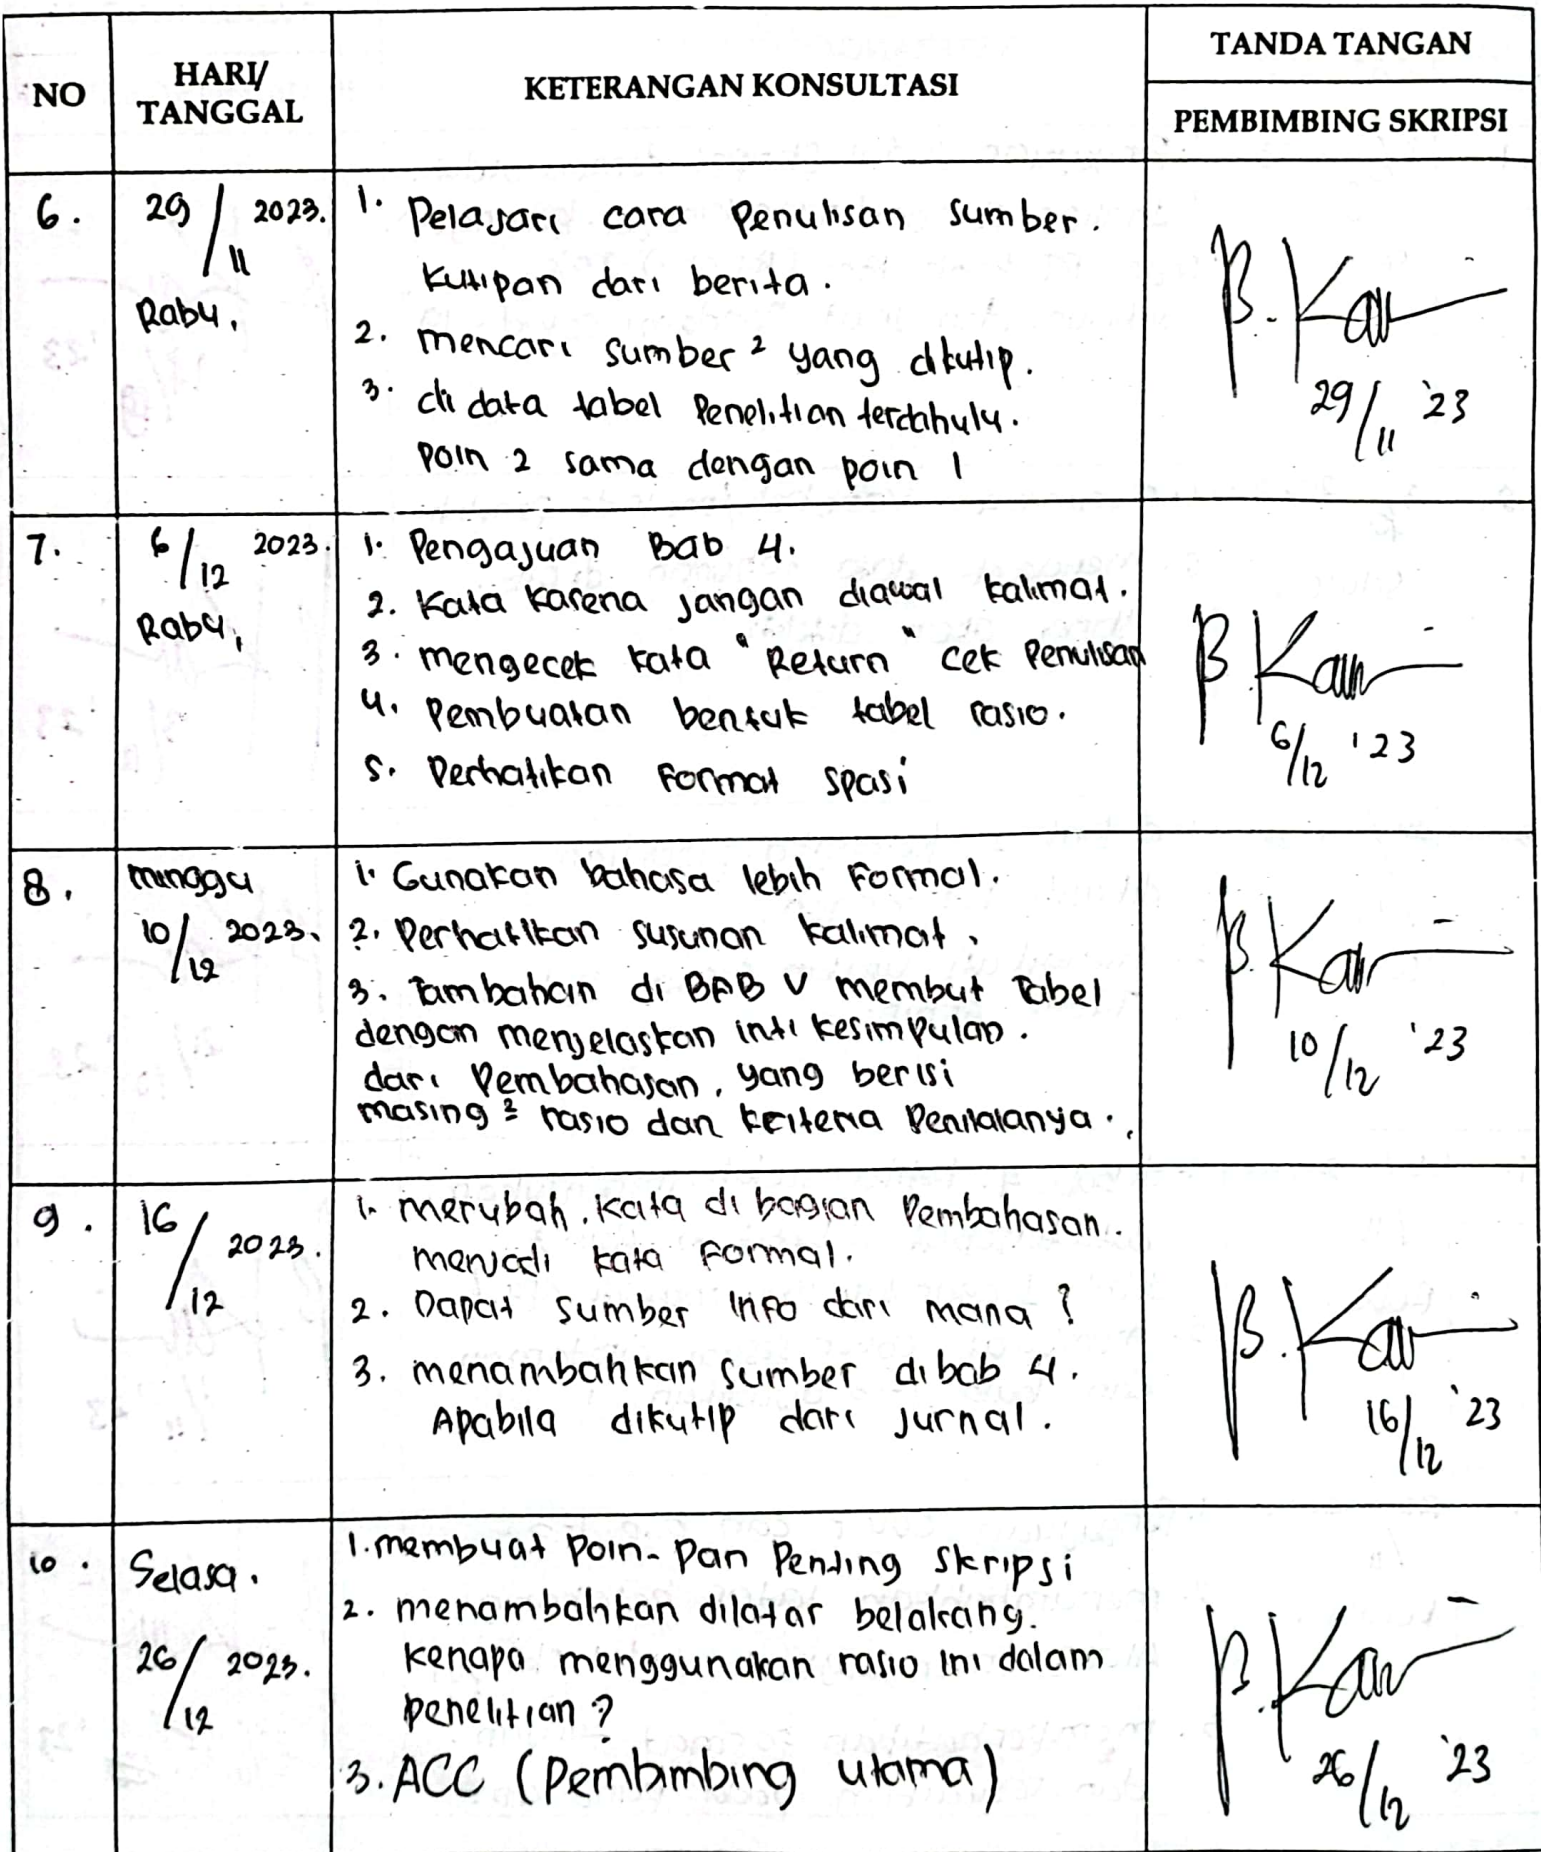 NO
HARI/
TANGGAL
KETERANGAN KONSULTASI
TANDA TANGAN
PEMBIMBING SKRIPSI
6.
29/11 2023.
Rabu,
1. Pelajari cara Penulisan sumber.
kutipan dari berita.
2. mencari sumber² yang dikutip.
3. di data tabel Penelitian terdahulu.
poin 2 sama dengan poin 1
B. Kar
29/11 '23
7.
6/12 2023.
Rabu,
1. Pengajuan Bab 4.
2. Kata karena jangan diawal kalimat.
3. mengecek kata "Return" cek Penulisan
4. Pembuatan bentuk tabel rasio.
5. Perhatikan Format spasi
6/12 '23
8.
minggu
10/12 2023.
1. Gunakan bahasa lebih Formal.
2. Perhatikan susunan kalimat.
3. Tambahan di BAB V membut Tabel
dengan menjelaskan inti kesimpulan.
dari Pembahasan, yang berisi
masing² rasio dan kriteria Penilaianya.
10/12 '23
9.
16/12 2023.
1. merubah. kata di bagian Pembahasan..
menjadi kata Formal.
2. Dapat sumber info dari mana?
3. menambahkan sumber dibab 4.
Apabila dikutip dari Jurnal.
16/12 '23
10.
Selasa.
26/12 2023.
1. membuat Poin-Poin Penting Skripsi
2. menambahkan dilatar belakang.
kenapa menggunakan rasio ini dalam
penelitian?
3. ACC (Pembimbing utama)
26/12 '23